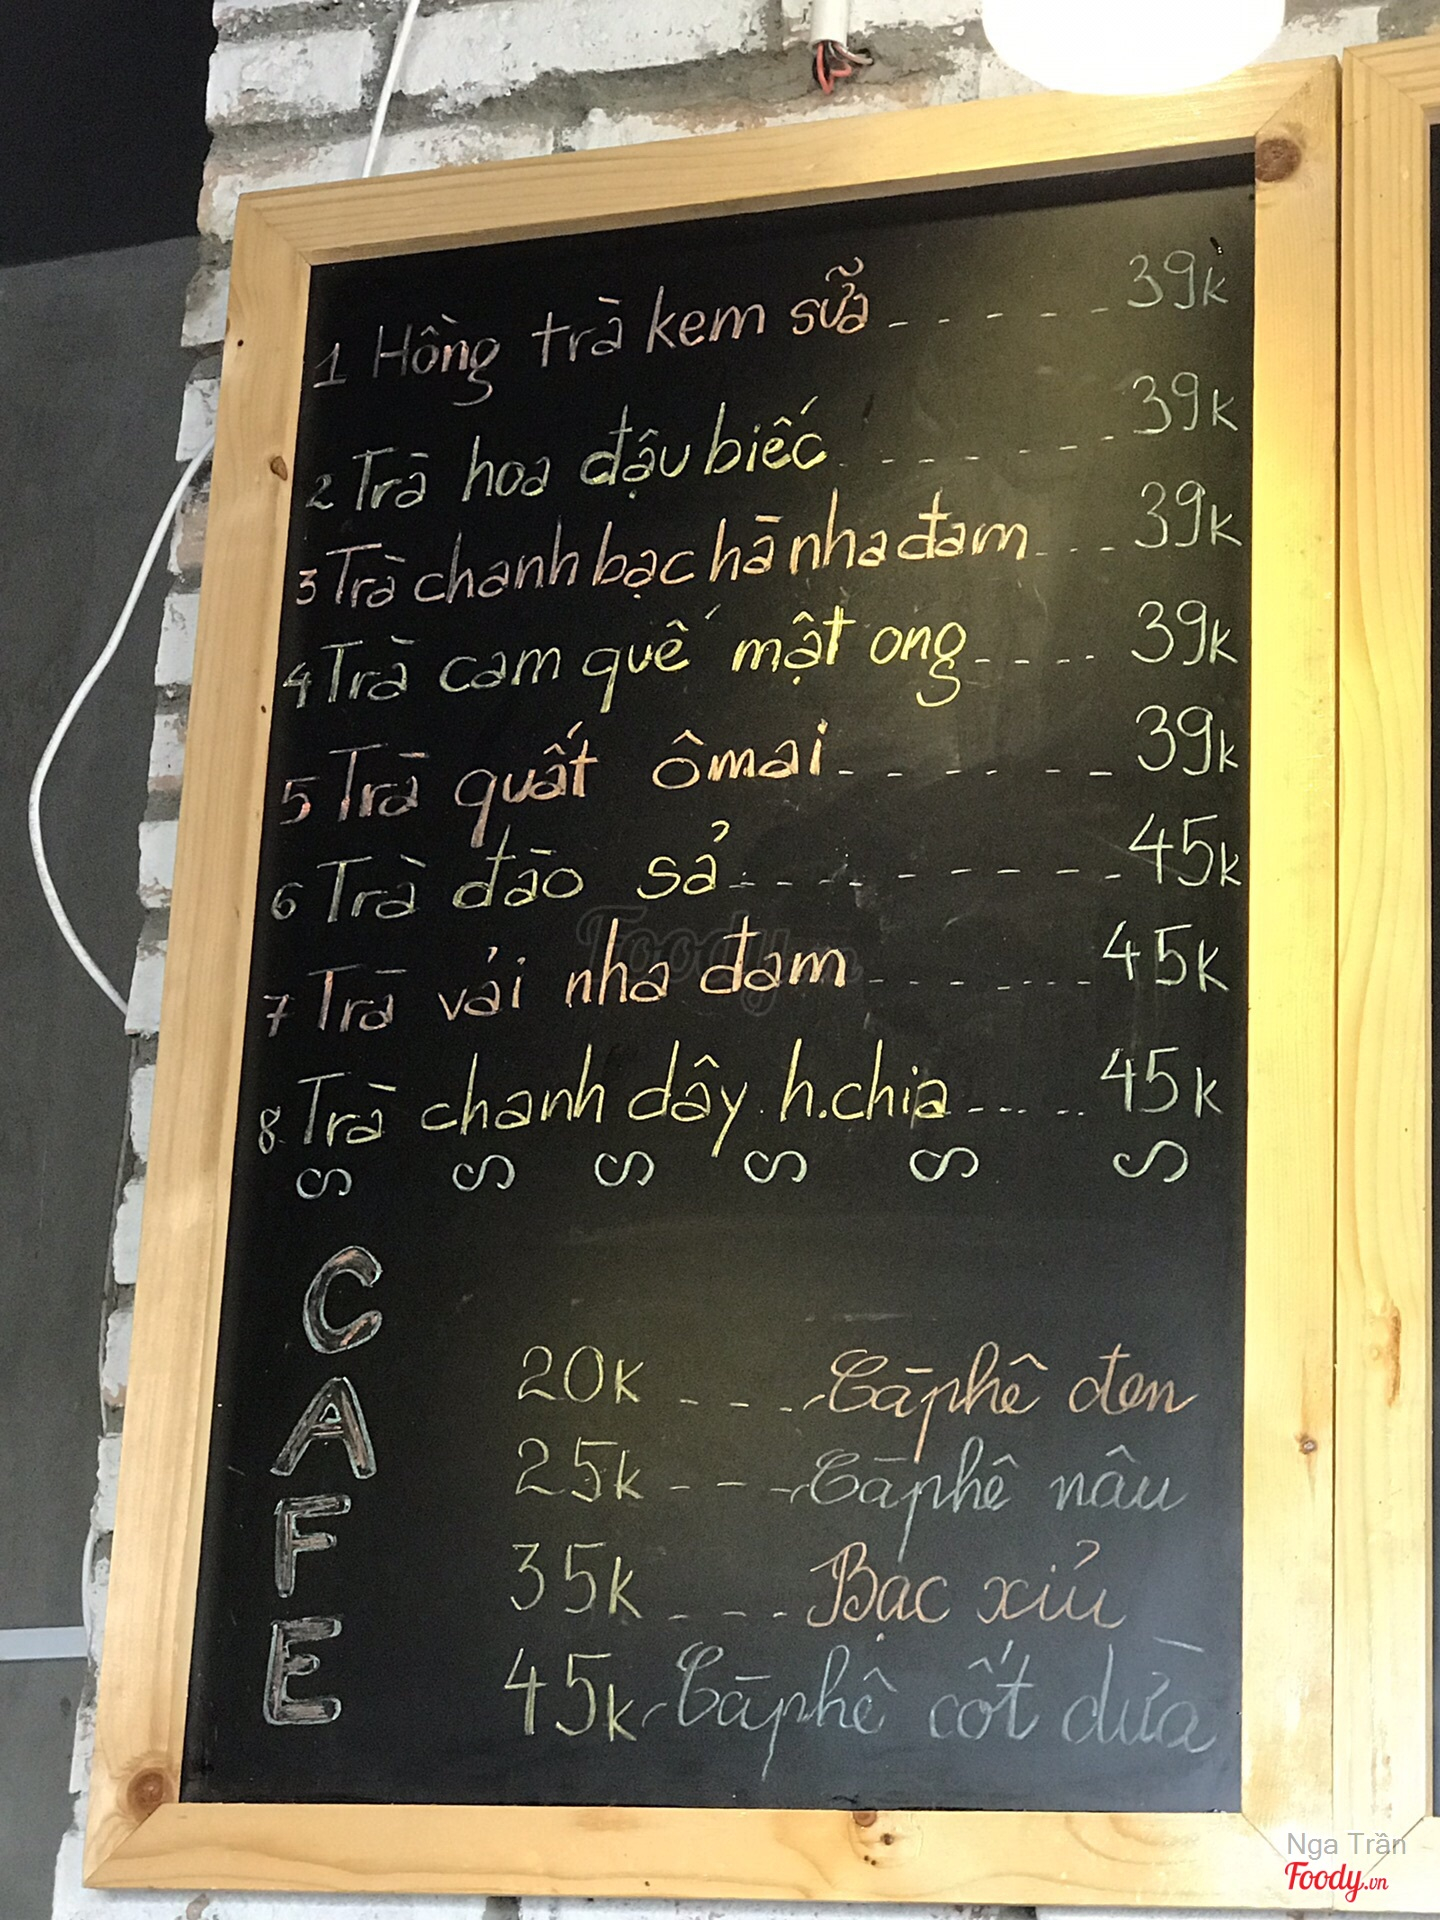 1 Hồng trà kem sữa - - - - - 39k
2 Trà hoa đậu biếc - - - - - - 39k
3 Trà chanh bạc hà nha đam - - - 39k
4 Trà cam quế mật ong - - - - 39k
5 Trà quất ô mai - - - - - - 39k
6 Trà đào sả - - - - - - - - - 45k
7 Trà vải nha đam - - - - - - - 45k
8. Trà chanh dây h.chia - - - - - 45k
S S S S S S
CAFE
20k - - - Cà phê đen
25k - - - Cà phê nâu
35k - - - Bạc xỉu
45k - Cà phê cốt dừa
Foody.vn
Nga Trần
Foody.vn